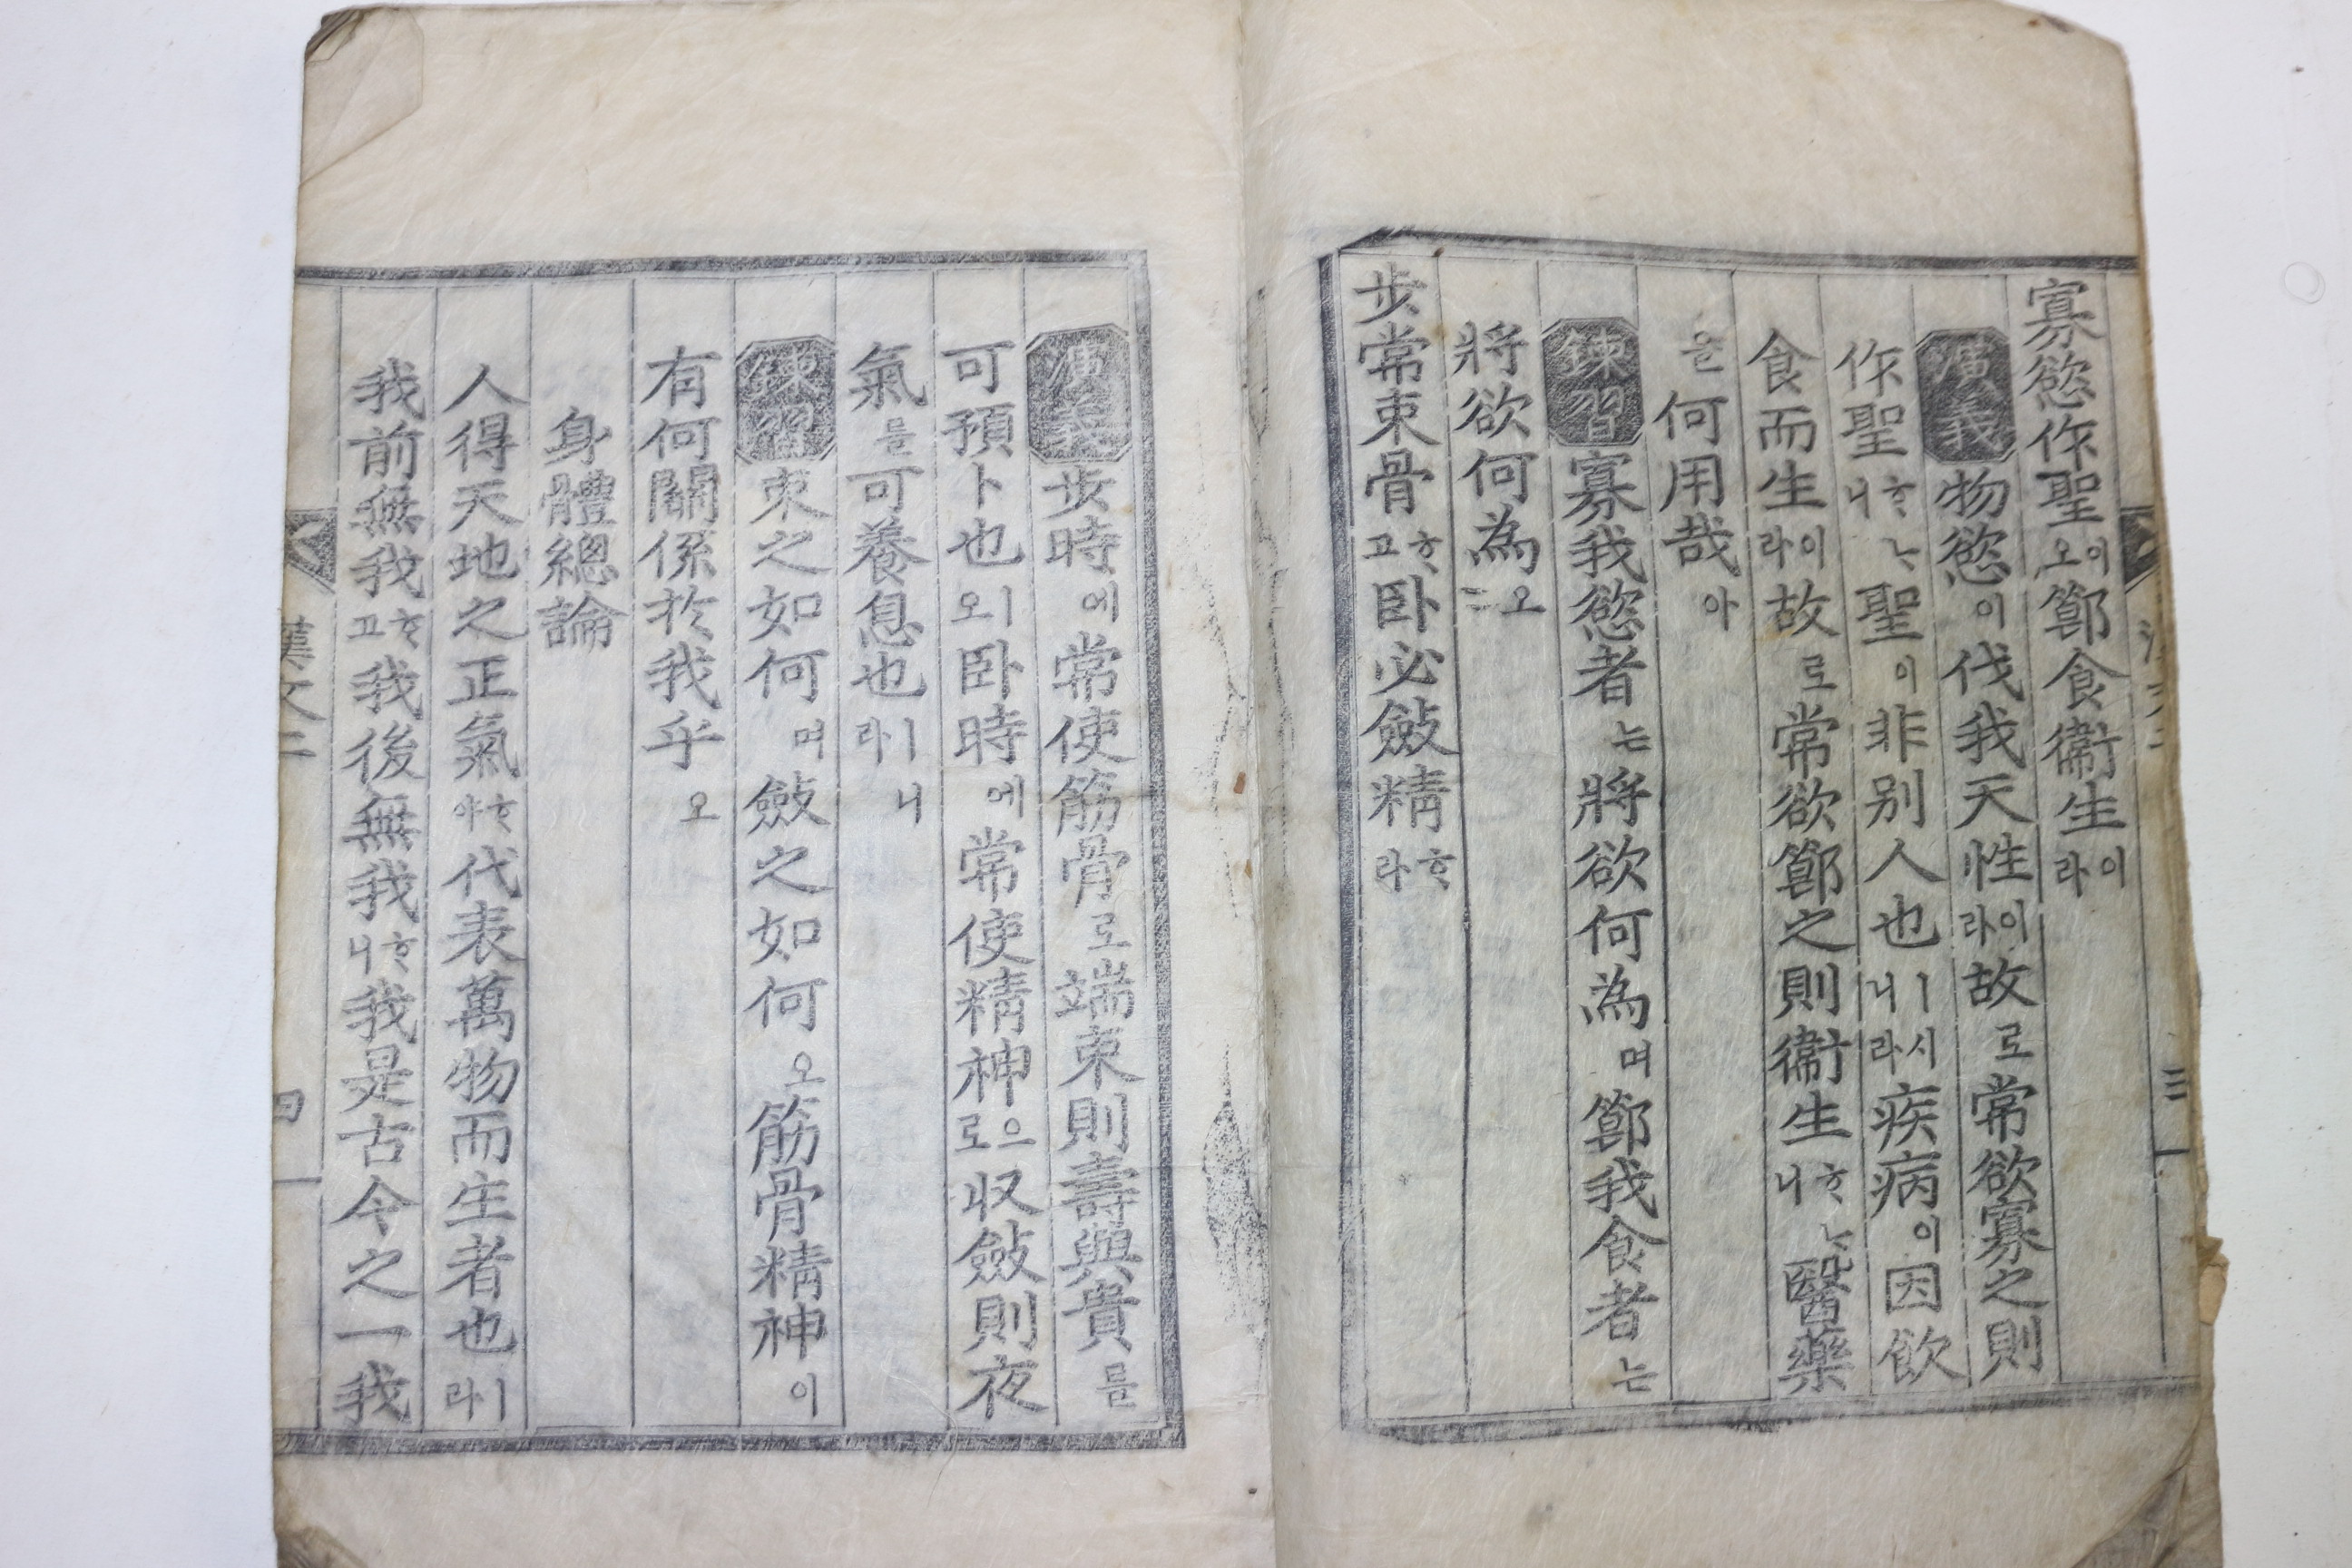 寡慾作聖이오節食衛生이라
演義物慾이伐我天性이라故로常欲寡之則
作聖하니聖이非別人也ㅣ시니라疾病이因飮
食而生이라故로常欲節之則衛生하니醫藥
을何用哉아
鍊習寡我慾者는將欲何為며節我食者는
將欲何為오
步常束骨하고臥必斂精하라
三
演義步時에常使筋骨로端束則壽與貴를
可預卜也ㅣ오臥時에常使精神으로収斂則夜
氣를可養息也ㅣ니라
鍊習束之如何며斂之如何오筋骨精神이
有何關係於我乎오
身體總論
人得天地之正氣하야代表萬物而生者也ㅣ라
我前無我하고我後無我하니我是古今之一我
漢文二
四